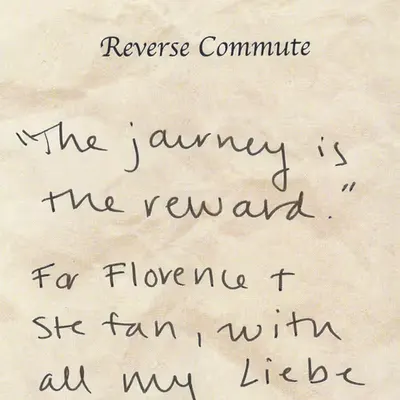 Reverse Commute
"The journey is
the reward."
For Florence +
Stefan, with
all my Liebe